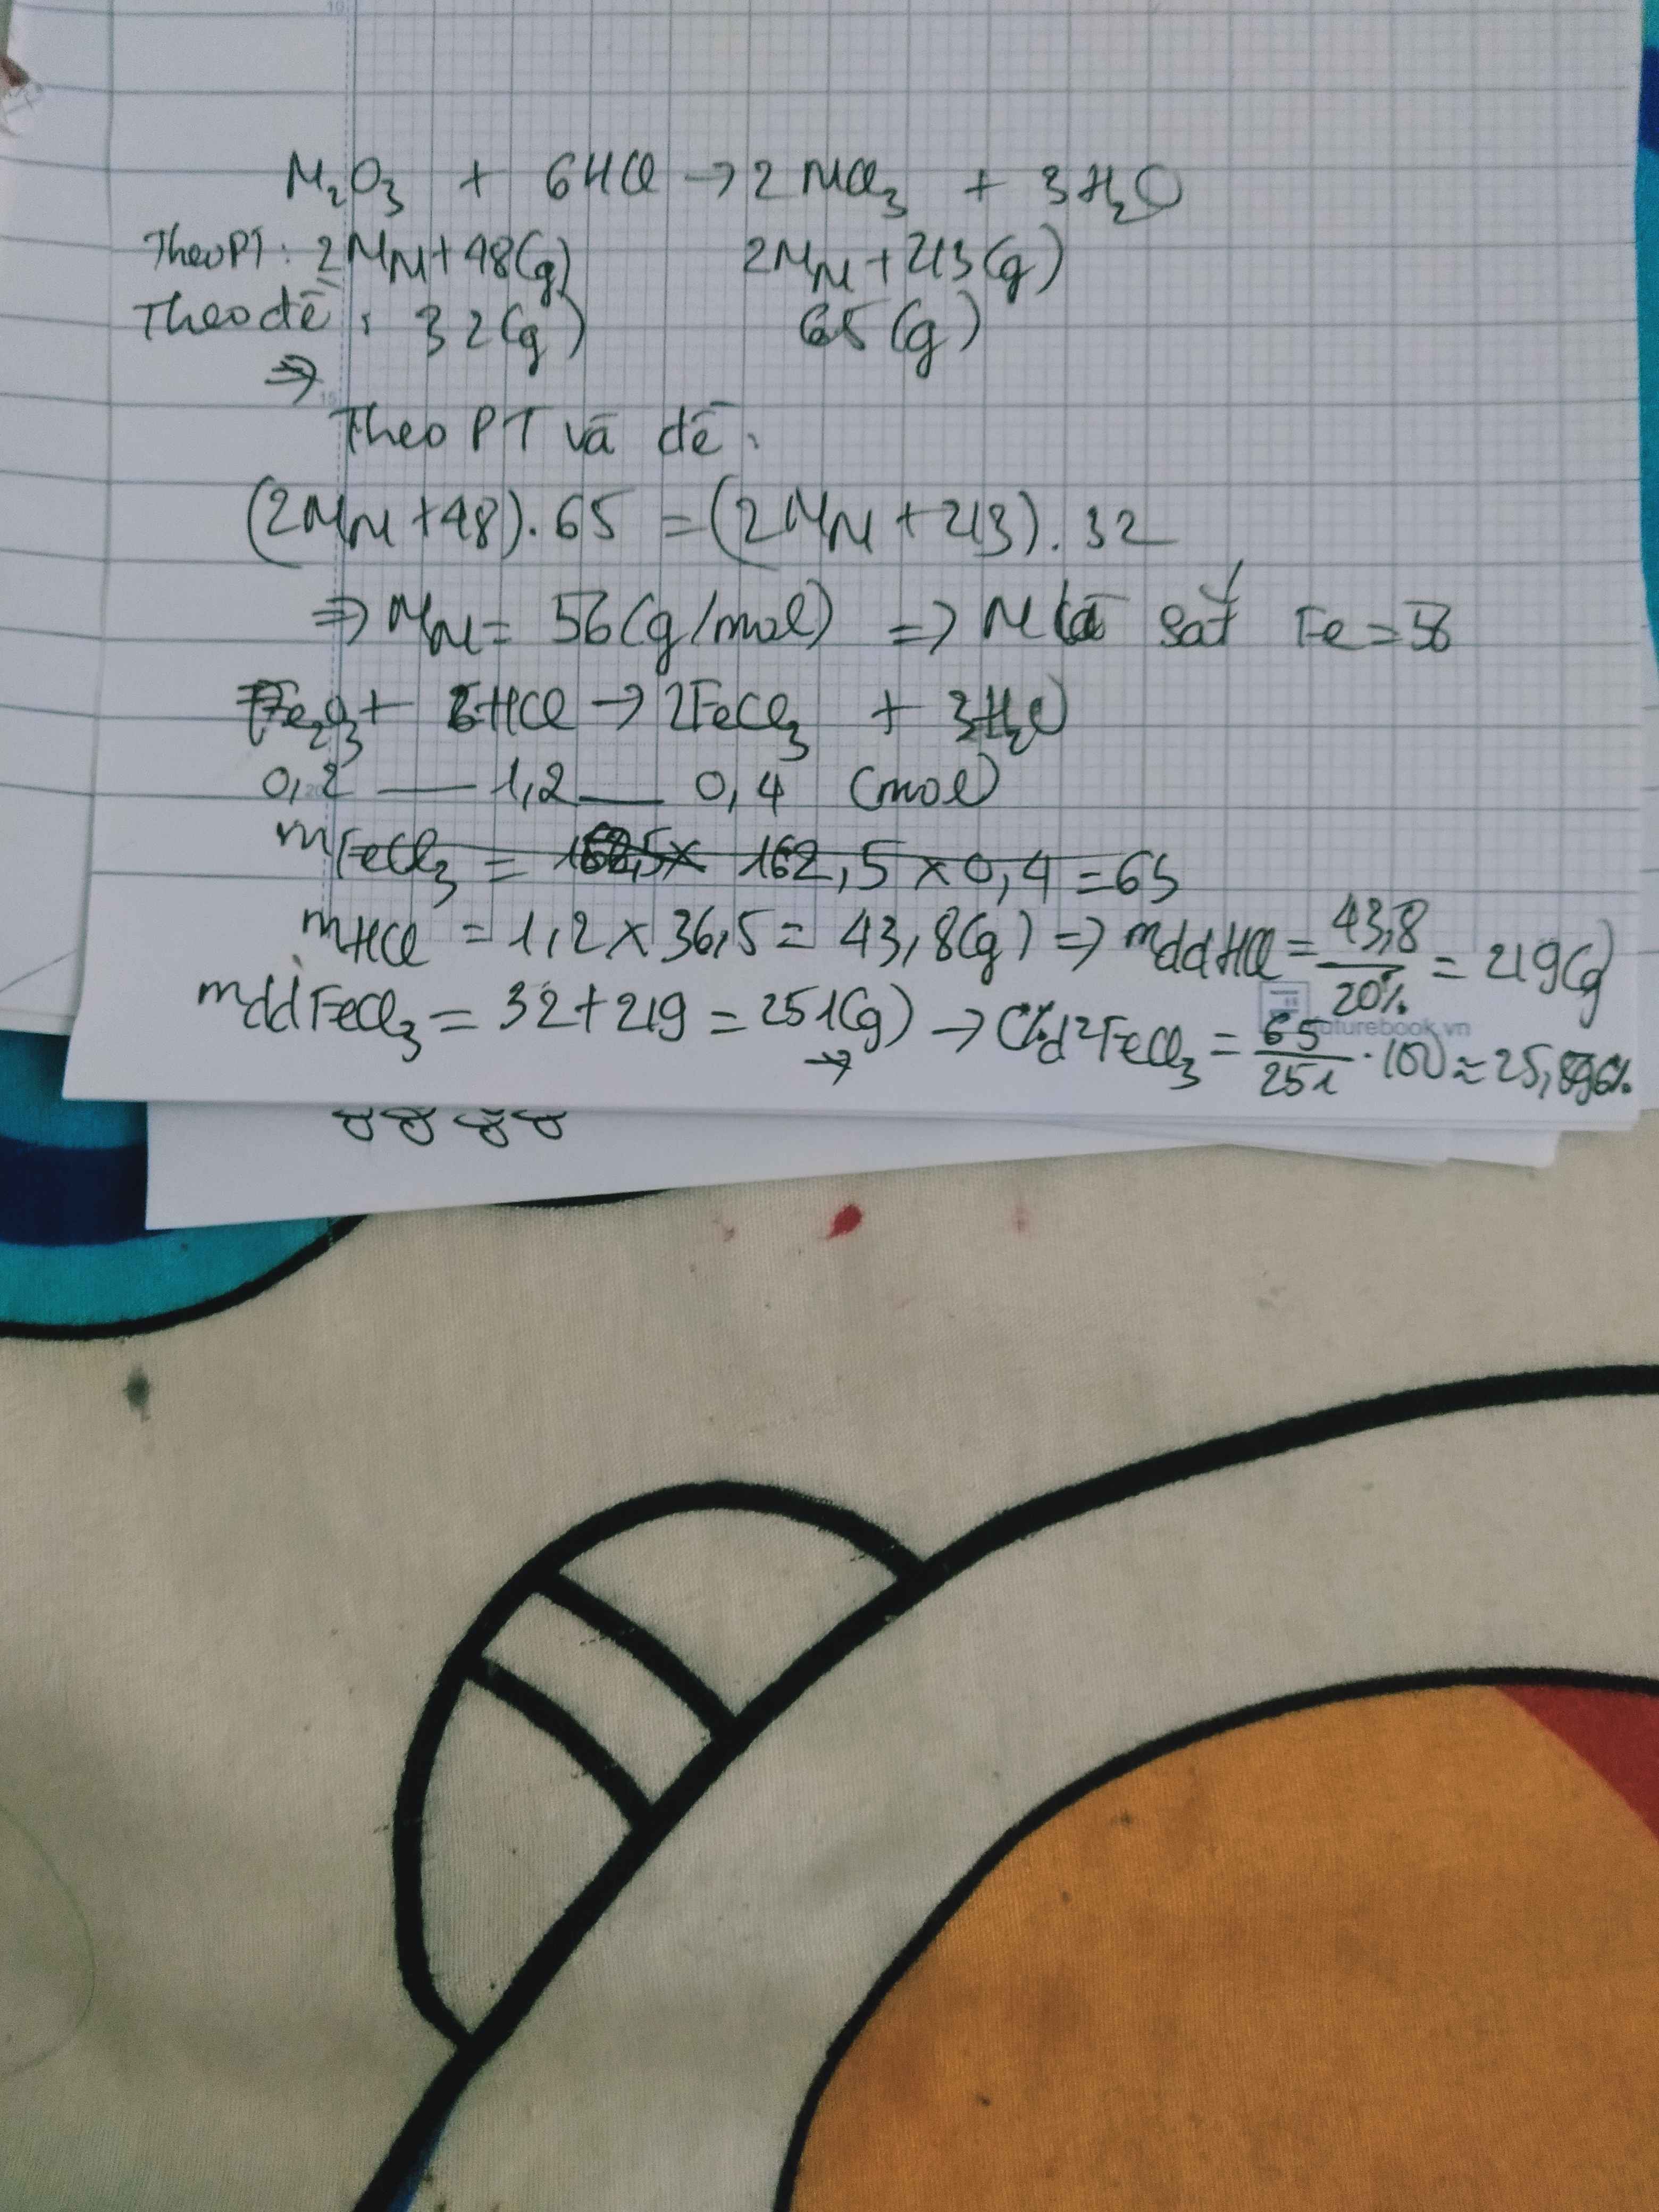 M₂O₃ + 6HCl → 2MCl₃ + 3H₂O
Theo PT: 2M_M + 48(g) 2M_M + 213(g)
Theo đề: 32(g) 65(g)
⇒
Theo PT và đề:
(2M_M + 48). 65 = (2M_M + 213). 32
⇒ M_M = 56(g/mol) ⇒ M là sắt Fe = 56
Fe₂O₃ + 6HCl → 2FeCl₃ + 3H₂O
0,2 — 1,2 — 0,4 (mol)
mFeCl₃ = 162,5 × 0,4 = 65
mHCl = 1,2 × 36,5 = 43,8(g) ⇒ mddHCl = 43,8/20% = 219(g)
mddFeCl₃ = 32 + 219 = 251(g) → C%d²FeCl₃ = 65/251 . 100 ≈ 25,896%
futurebook.vn